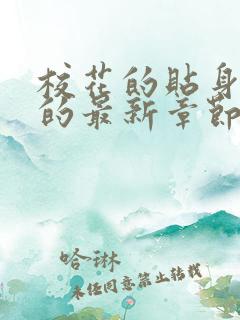 校花的贴身
的最新章节
哈琳
未经同意禁止转载